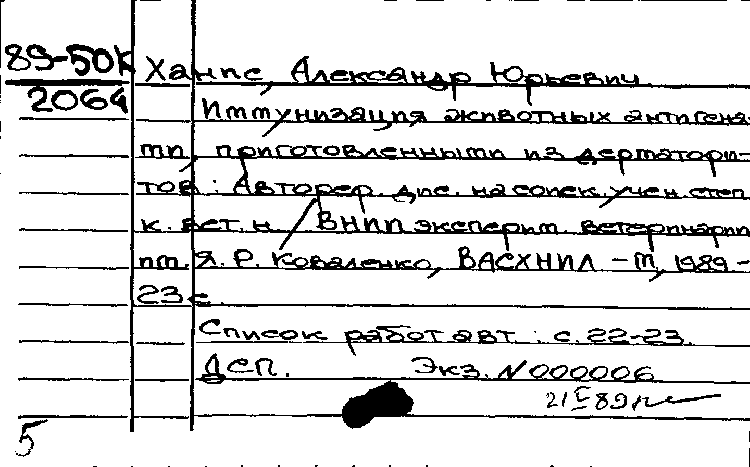 89-50К
2064
Ханис, Александр Юрьевич
Иммунизация животных антигена-
ми, приготовленными из дерматофи-
тов: Автореф. дис. на соиск. учен. степ.
к. вет. н / ВНИИ эксперим. ветеринарии
им. Я. Р. Коваленко, ВАСХНИЛ - М, 1989 -
23 с.
Список работ авт.: с. 22-23.
ДСП. Экз. N 000006
21 V 89
5